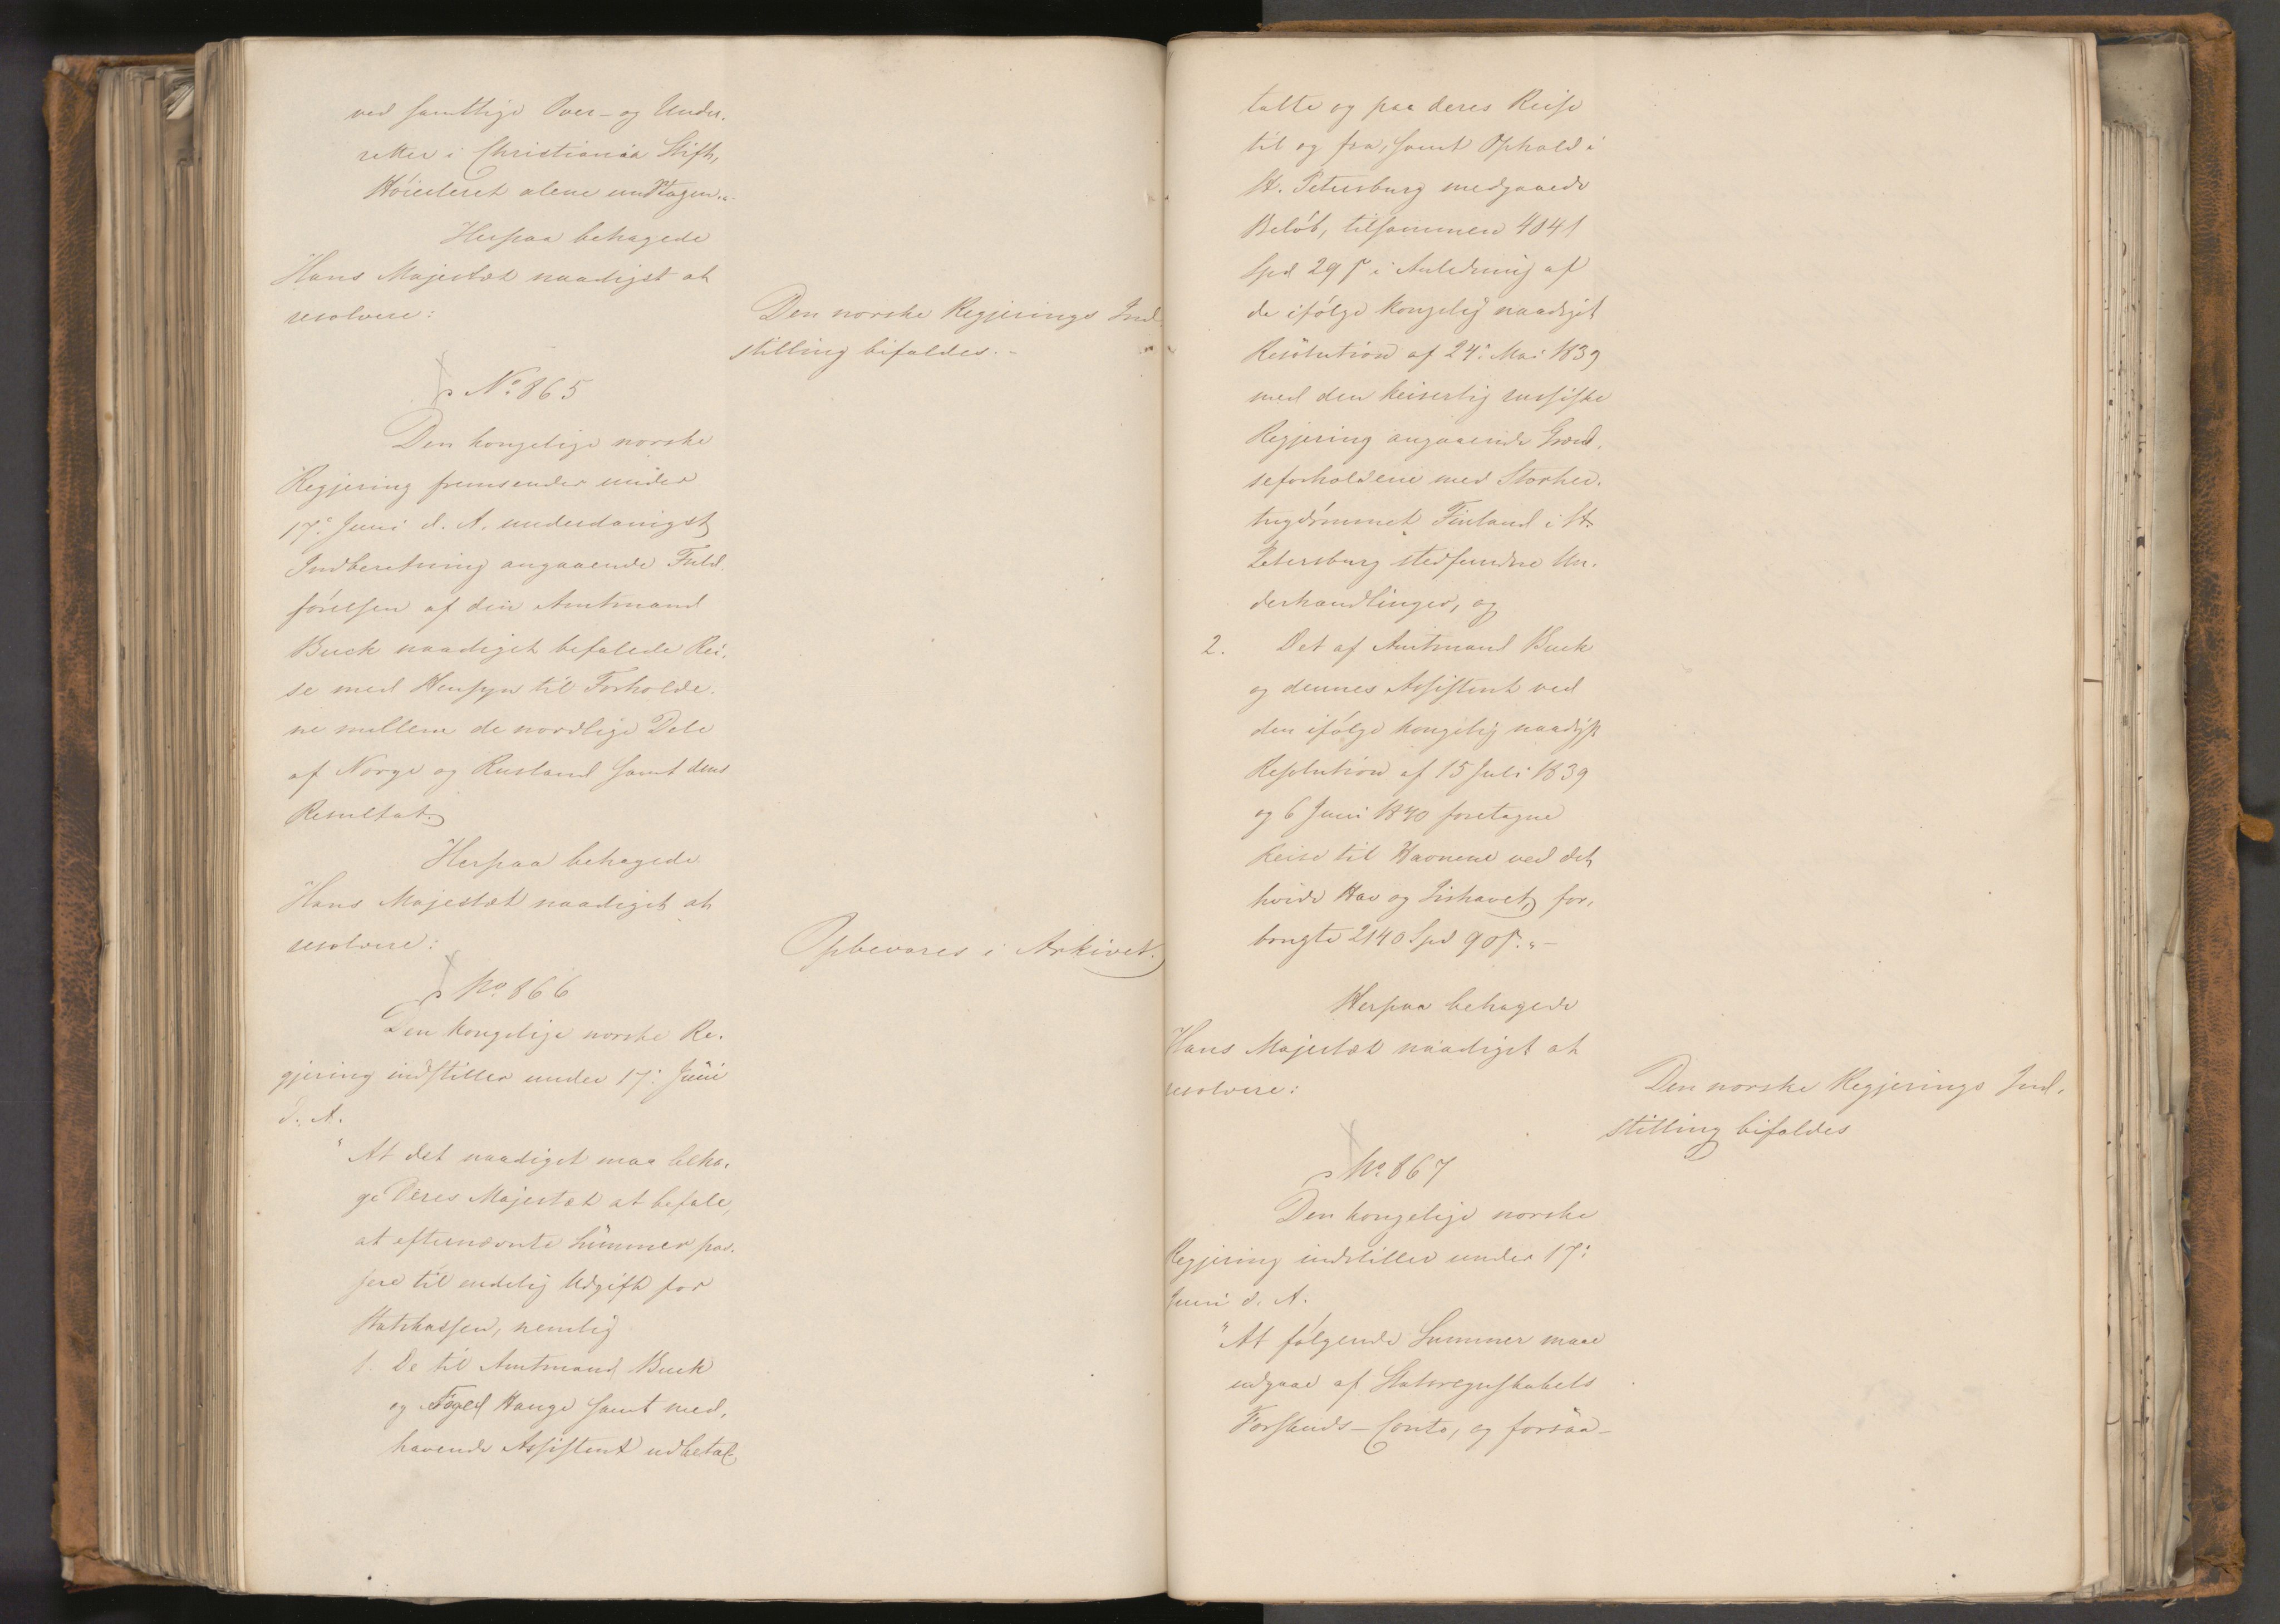 ved samtlige Over- og Under-
retter i Christiania Stift,
Høiesteret alene undtagen."
Herpaa behagede
Hans Majestæt naadigst at
resolvere:
Den norske Regjerings Ind-
stilling bifaldes.-
No. 865
Den kongelige norske
Regjering fremsender under
17: Juni d. A. underdanigst
Indberetning angaaende Fuld-
førelsen af den Amtmand
Buck naadigst befalede Rei-
se med Hensyn til Forholde-
ne mellem de nordlige Dele
af Norge og Rusland samt dens
Resultat.
Herpaa behagede
Hans Majestæt naadigst at
resolvere:
Opbevares i Arkivet.
No. 866
Den kongelige norske Re-
gjering indstiller under 17: Juni
d. A.
"At det naadigst maa beha-
ge Deres Majestæt at befale,
at efternævnte Summer pas-
sere til endelig Udgift for
Statskassen, nemlig
1. De til Amtmand Buck
og Foged Hauge samt med-
havende Assistent udbetal-
talte og paa deres Reise
til og fra, samt Ophold i
St. Petersburg medgaaede
Beløb, tilsammen 4041
Spd 29 ß i Anledning af
de ifølge kongelig naadigst
Resolution af 24: Mai 1839
med den keiserlig russiske
Regjering angaaende Grænd-
seforholdene med Storher-
tugdømmet Finland i St.
Petersburg stedfundne Un-
derhandlinger, og
2. Det af Amtmand Buck
og dennes Assistent ved
den ifølge kongelig naadigst
Resolution af 15 Juli 1839
og 6 Juni 1840 foretagne
Reise til Havnene ved det
hvide Hav og Iishavet, for-
brugte 2140 Spd 90 ß."-
Herpaa behagede
Hans Majestæt naadigst at
resolvere:
Den norske Regjerings Ind-
stilling bifaldes
No. 867
Den kongelige norske
Regjering indstiller under 17:
Juni d. A.
"At følgende Summer maae
udgaae af Statsregnskabets
Forskuds-Conto, og forsaa-